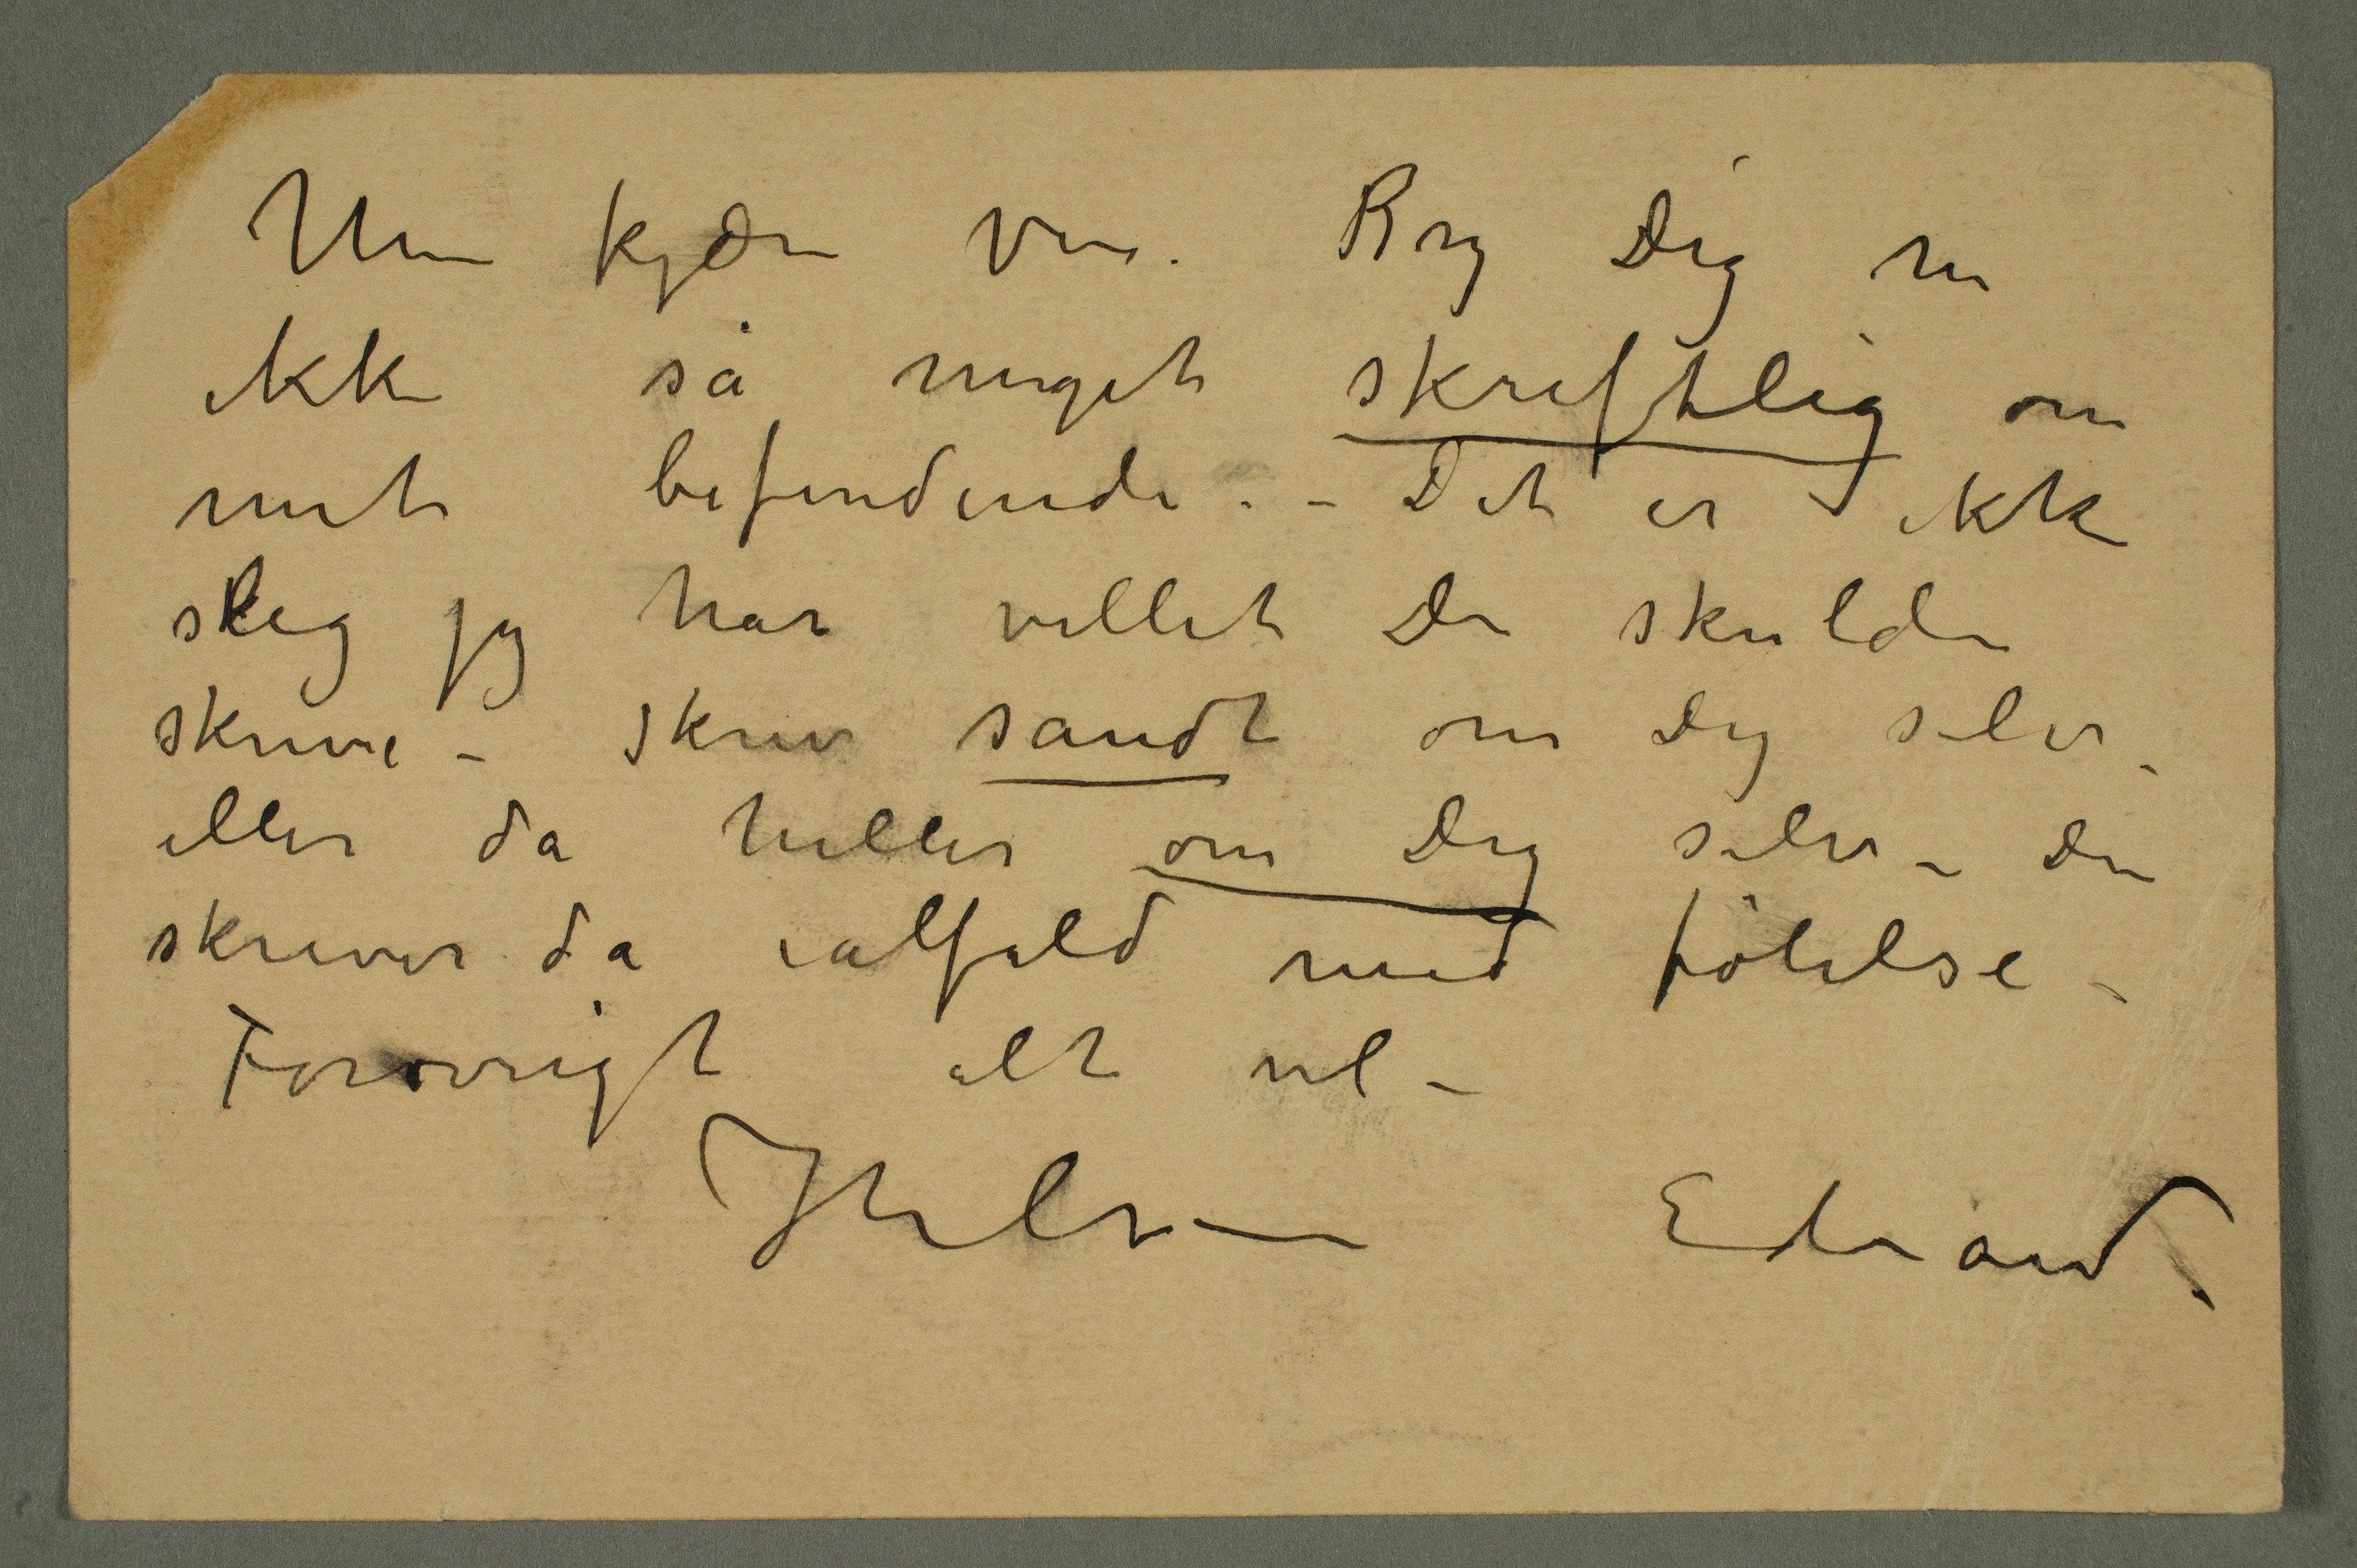 Min kjære ven. Bry Dig nu
ikke så meget skriftlig om
mit befindende. – Det er ikke
slig jeg har villet Du skulde
skrive – skriv sandt om Dig selv –
eller da heller om Dig selv – Du
skriver da ialfald med følelse –
Forøvrigt alt vel –
Hilsen Edvard